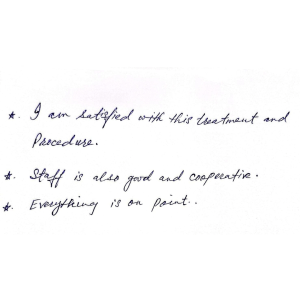 *. I am satisfied with this treatment and
Procedure.
*. Staff is also good and cooperative.
*. Everything is on point..